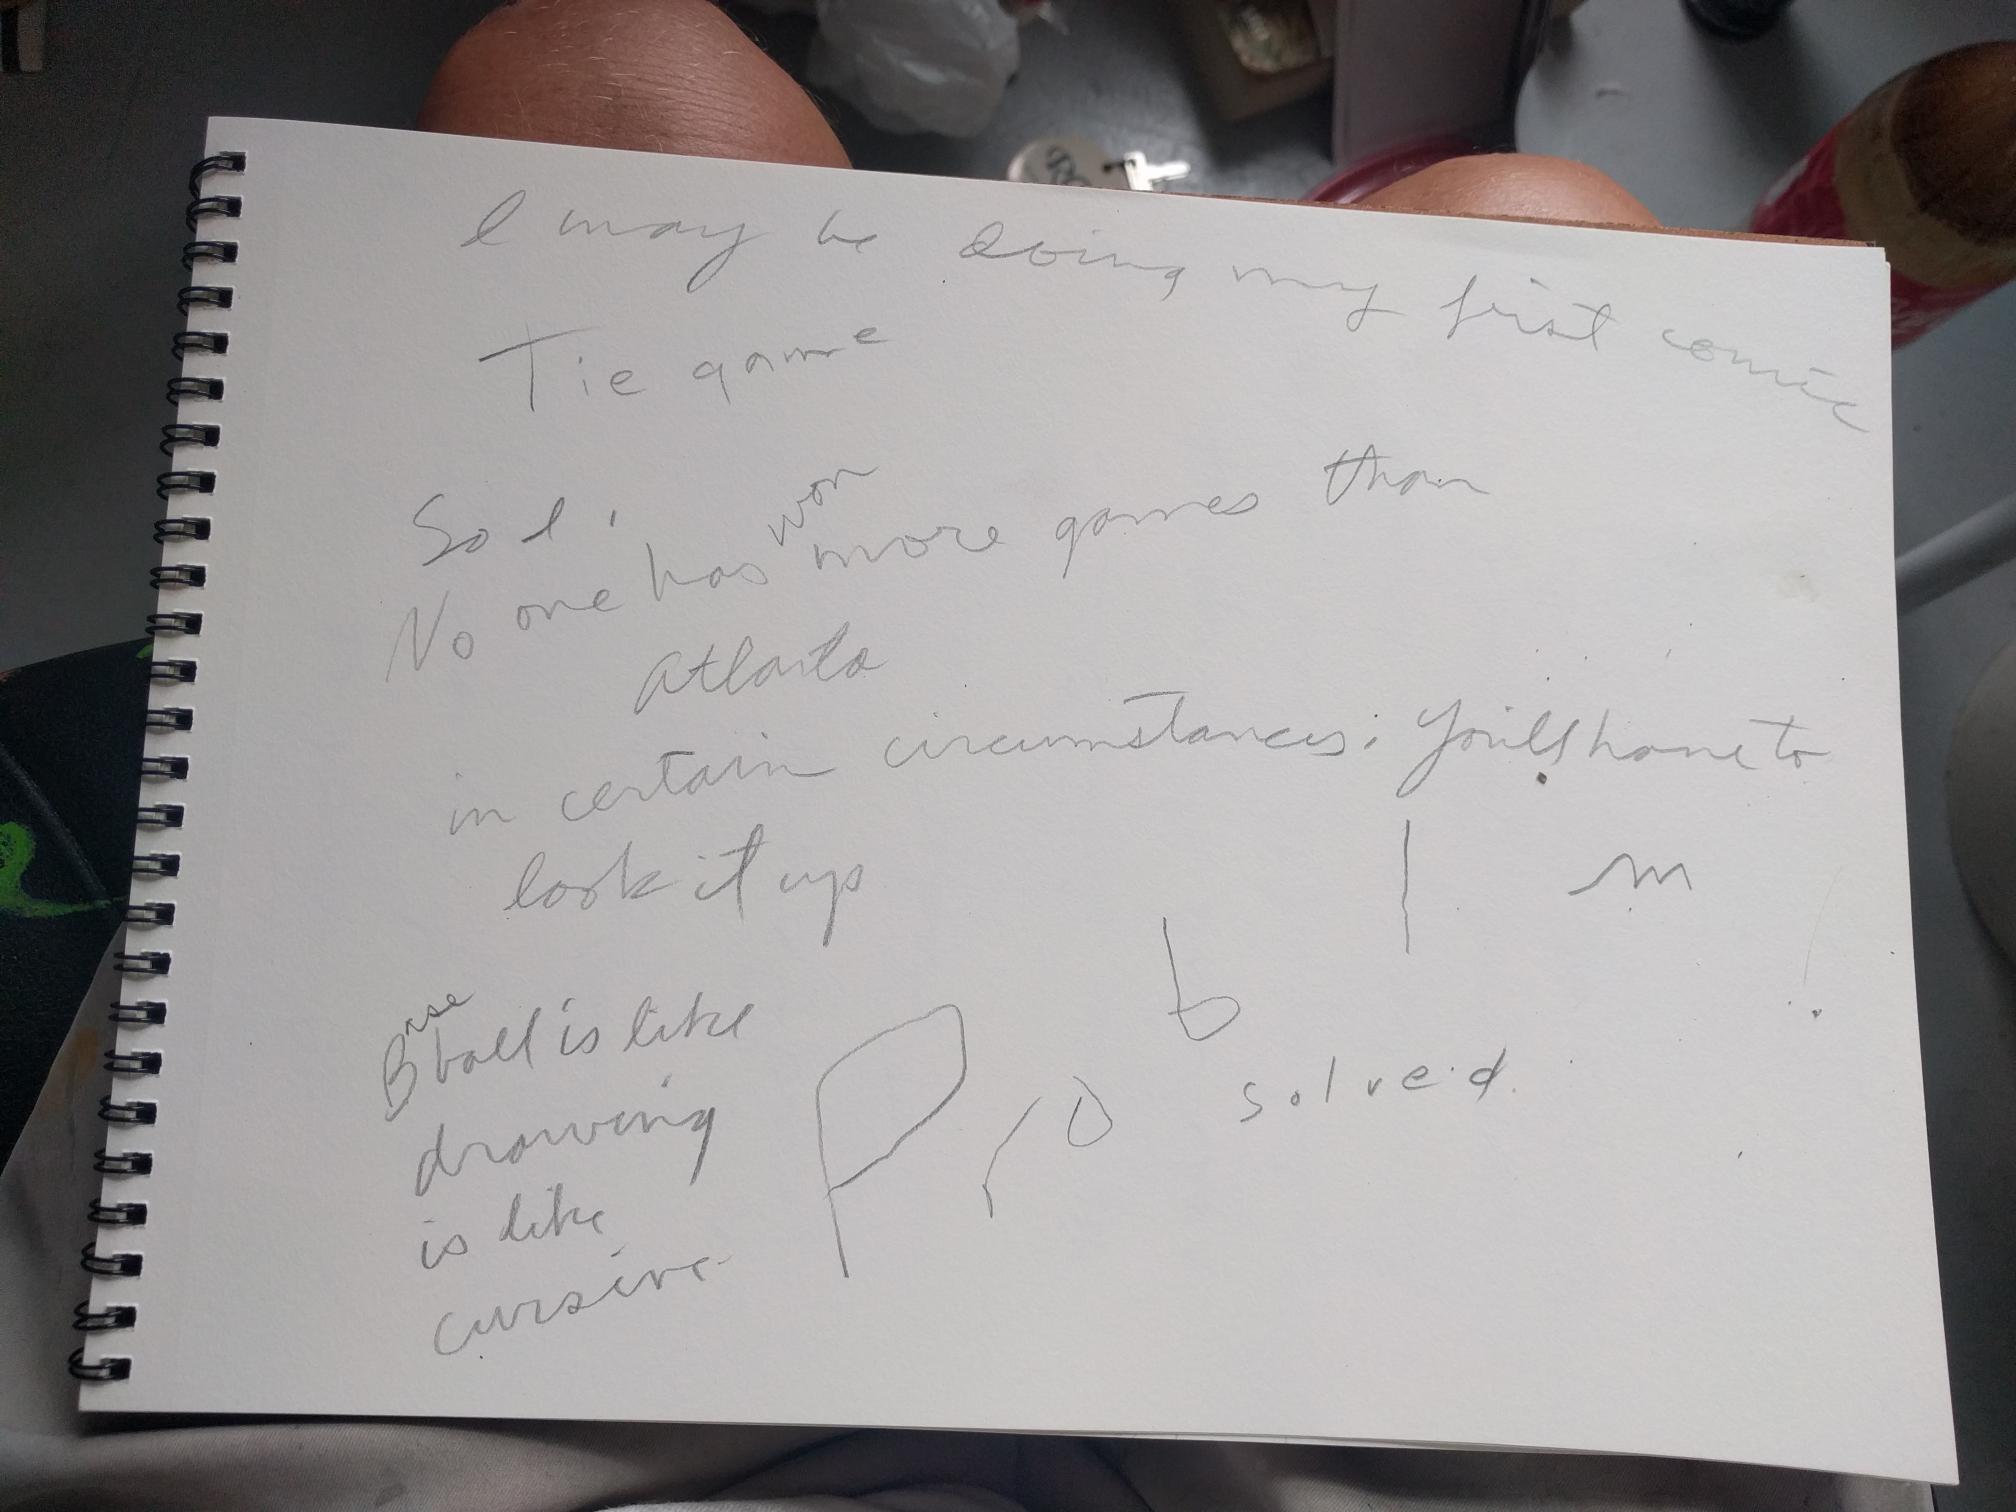 I may be doing my first comic
Tie game
So I,
No one has won more games than
Atlanta
in certain circumstances. You'll have to
look it up
Baseball is like
drawing
is like
cursive.
Pro b l m
solved.